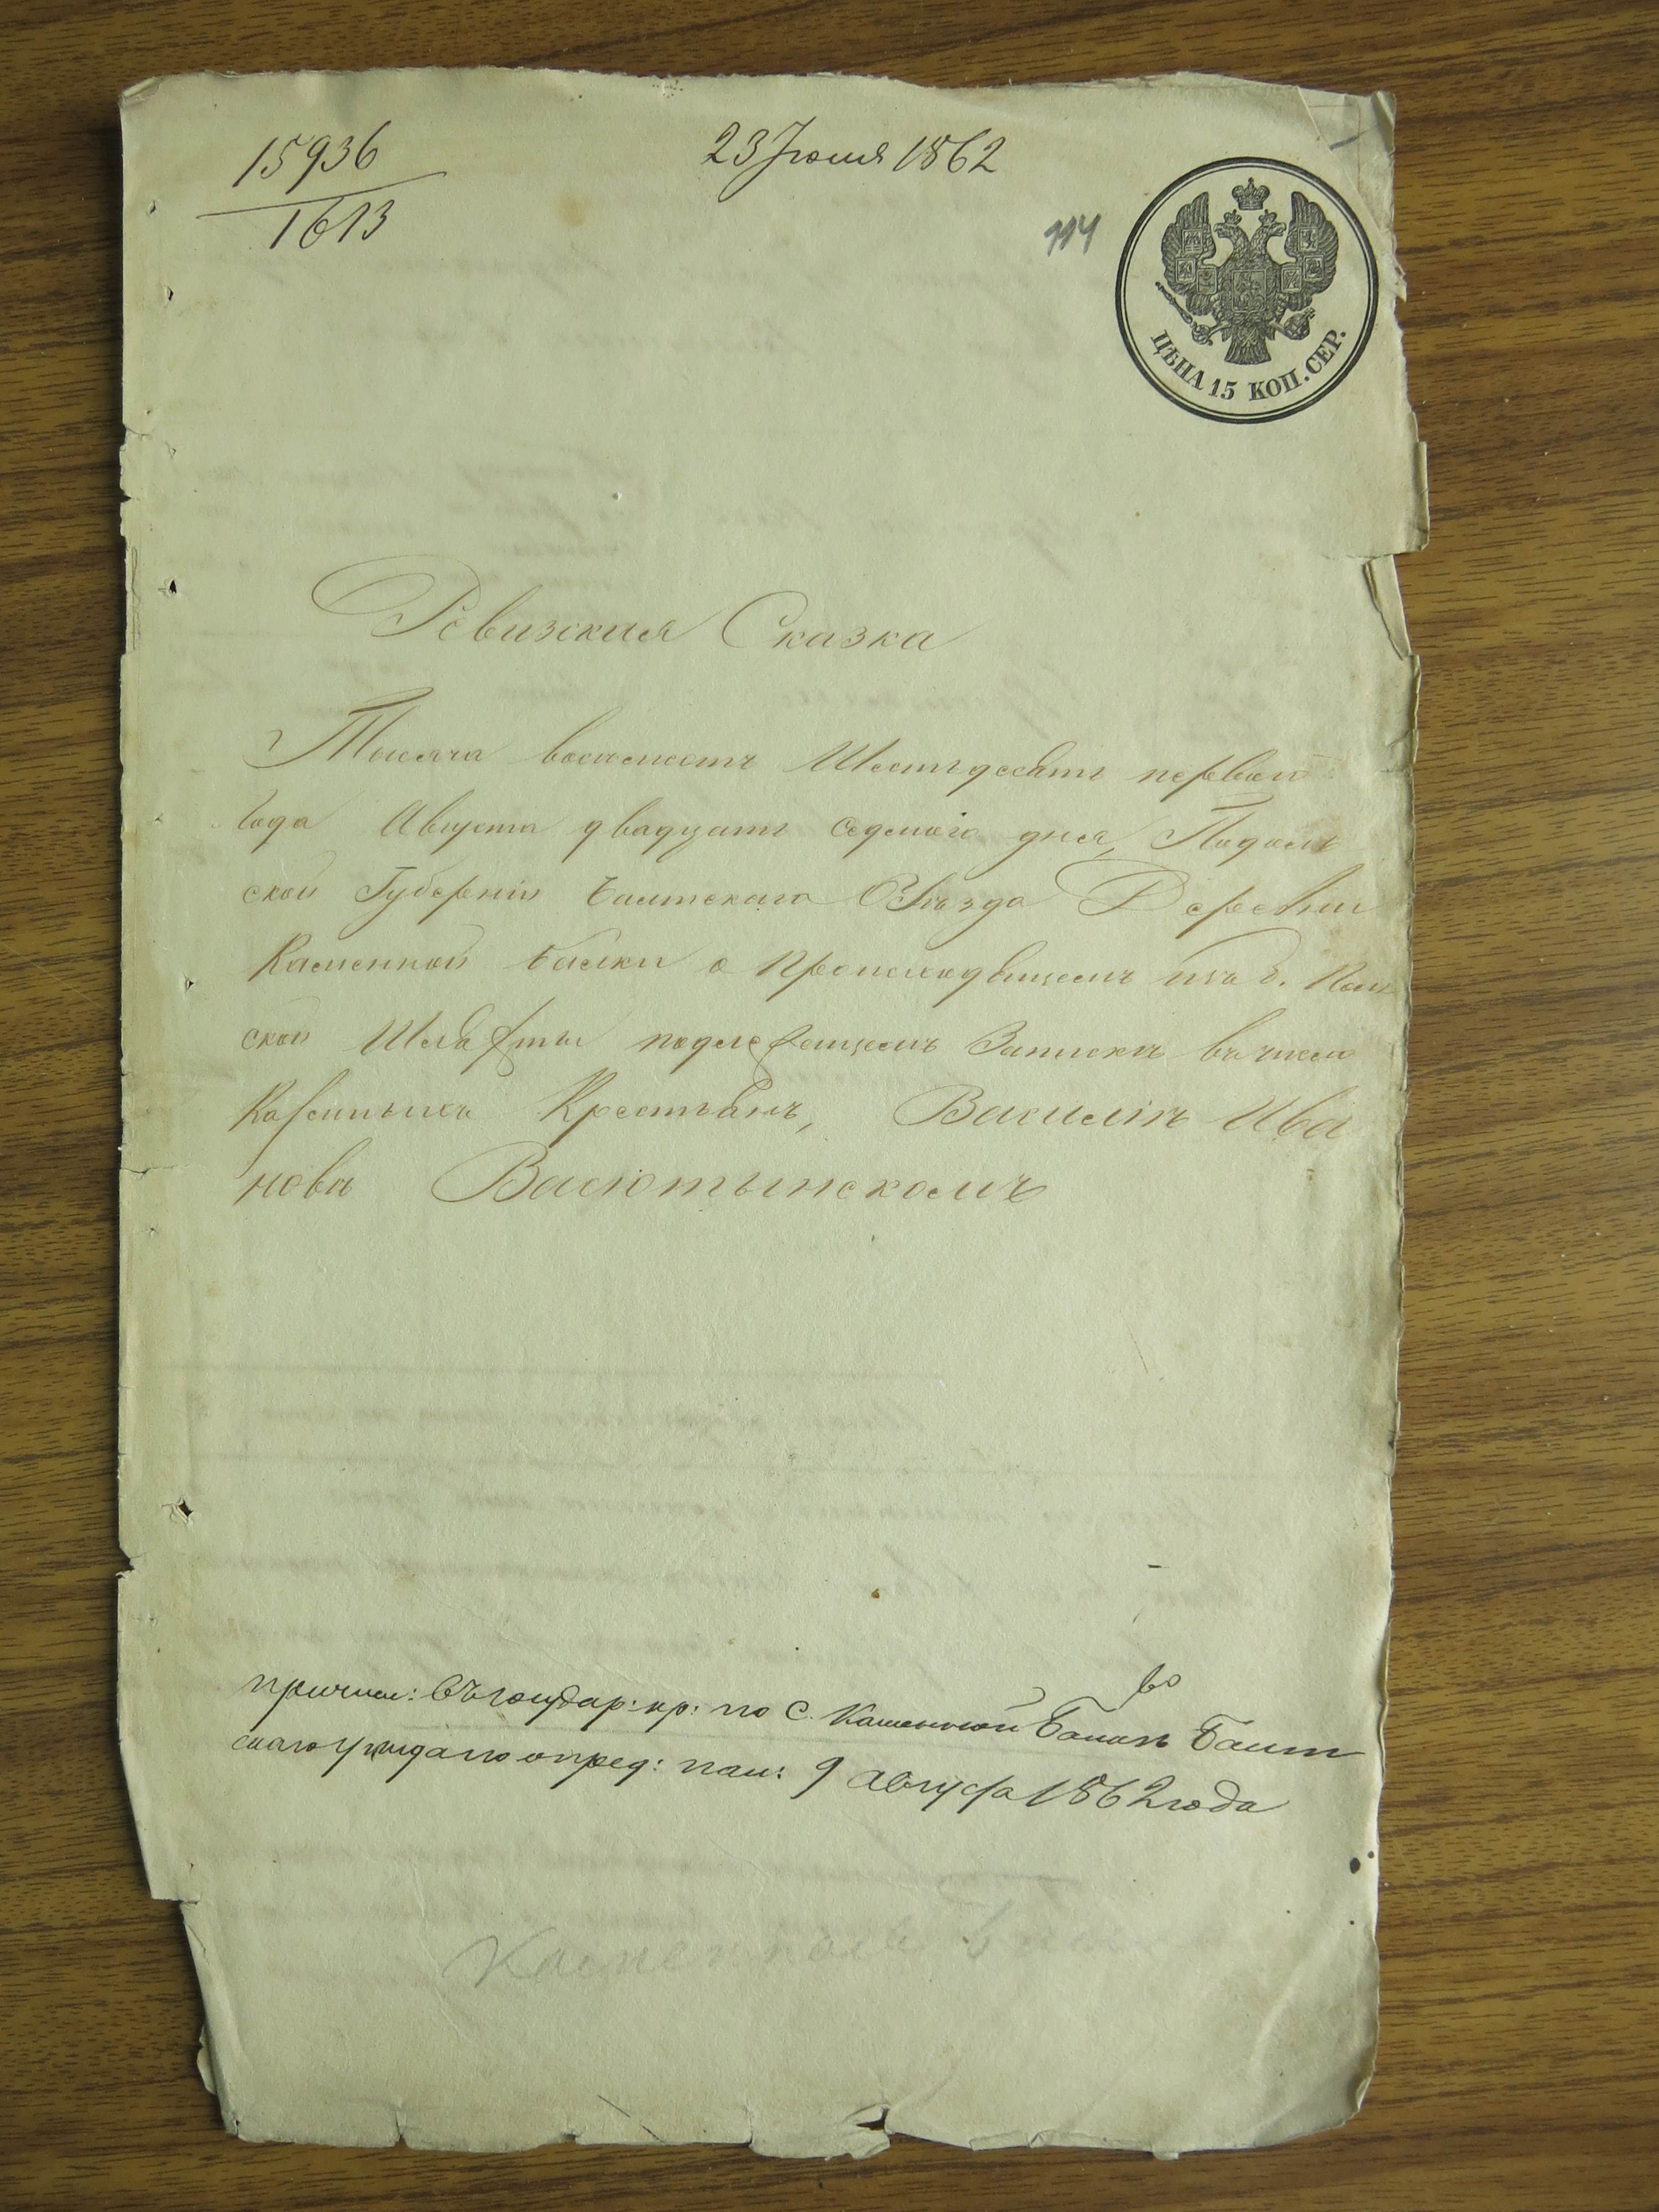 15936
1613
23 Іюля 1862
114
ЦѢНА 15 КОП. СЕР.
Ревизская Сказка
Тысяча восемьсотъ Шестьдесятъ первый
года Августа двадцать седьмого дня, Подоль
ской Губерніи Балтскаго Уѣзда Деревни
Каменной балки о происходящемъ изъ б. Поль
ской Шляхты подлежащемъ Запискѣ въ число
Казенныхъ Крестьянъ, Василіѣ Ива
новѣ Васютынскомъ
причис: въ государ: кр: по С. Каменной Балкѣ Балт
скаго уѣзда по опред: пал: 9 августа 1862 года
Каменная